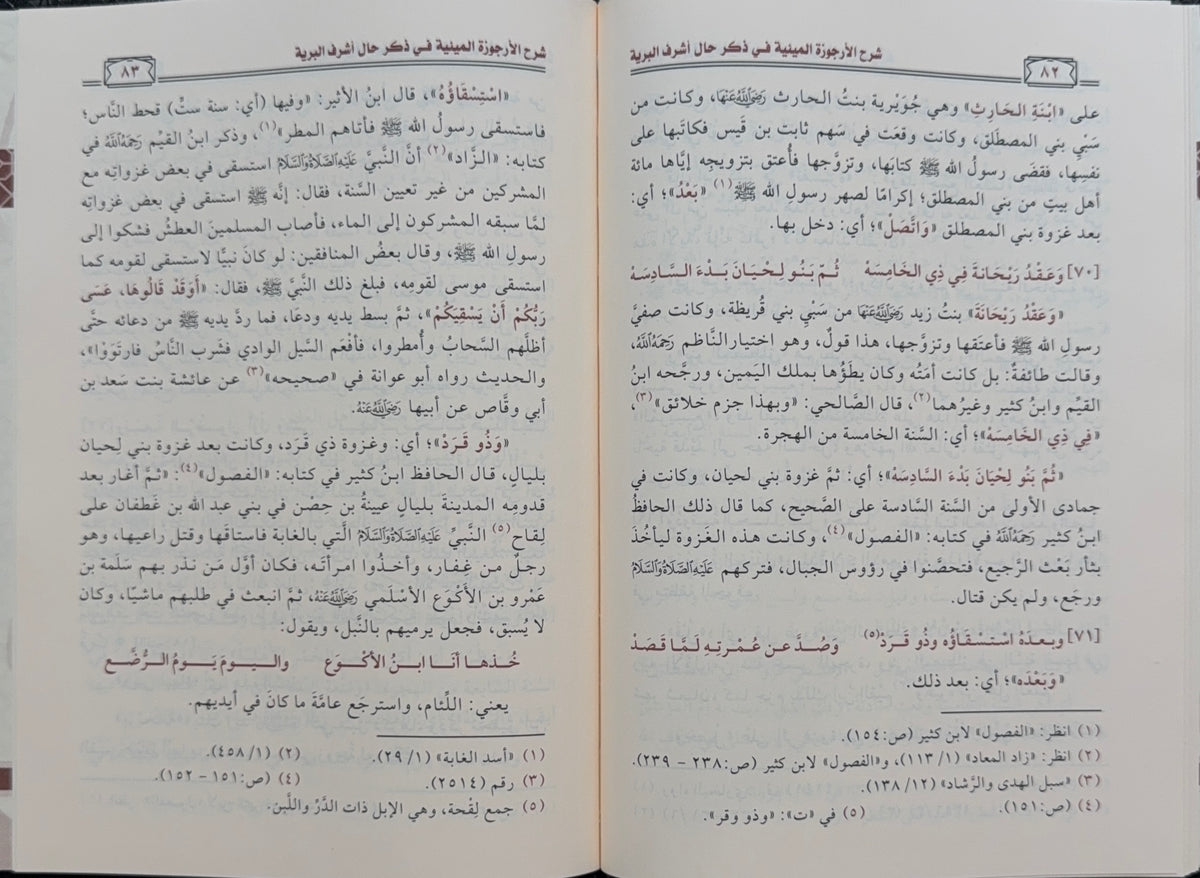 شرح الأرجوزة الميئية في ذكر حال أشرف البرية
٨٢
على «ابْنَةِ الحَارِثِ» وهي جُوَيْرية بنتُ الحارث رَضِيَ اللَّهُ عَنْهَا، وكانت من
سَبْيِ بني المصطَلق، وكانت وقعَت في سَهم ثابت بن قَيس فكاتَبها على
نفسِها، فقضَى رسولُ الله ﷺ كتابَها، وتزوَّجها فأُعتق بتزويجِه إيَّاها مائة
أهل بيتٍ من بني المصطلق؛ إكرامًا لصهر رسولِ الله ﷺ(١) «بَعْدُ»؛ أي:
بعد غزوة بني المصطلق «وَاتَّصَلْ»؛ أي: دخل بها.
[٧٠] وَعَقْدُ رَيْحَانَةَ فِي ذِي الخَامِسَهْ ثُمَّ بَنُو لِحْيَانَ بَدْءَ السَّادِسَهْ
«وَعَقْدُ رَيْحَانَةَ» بنتُ زيد رَضِيَ اللَّهُ عَنْهَا من سَبْيِ بني قُريظة، وكانت صفيَّ
رسولِ الله ﷺ فأعتَقها وتزوَّجها، هذا قولٌ، وهو اختيار النَّاظم رَحِمَهُ اللَّهُ،
وقالت طائفةٌ: بل كانت أمَتُه وكان يطَؤُها بملك اليَمين، ورجَّحه ابنُ
القيِّم وابنُ كثير وغيرُهما(٢)، قال الصَّالحي: «وبهذا جزم خلائق»(٣)،
«فِي ذِي الخَامِسَهْ»؛ أي: السَّنة الخامسة من الهجرة.
«ثُمَّ بَنُو لِحْيَانَ بَدْءَ السَّادِسَهْ»؛ أي: ثمَّ غزوة بني لحيان، وكانت في
جمادى الأولى من السَّنة السَّادسة على الصَّحيح، كما قال ذلك الحافظُ
ابنُ كثير رَحِمَهُ اللَّهُ في كتابه: «الفصول»(٤)، وكانت هذه الغَزوة ليأخُذَ
بثأر بَعْث الرَّجيع، فتحصَّنوا في رؤوس الجبال، فتركهم عَلَيْهِ الصَّلَاةُ وَالسَّلَامُ
ورجَع، ولم يكن قتال.
[٧١] وبعدَهُ اسْتِسْقَاؤُه وذُو قَرَدْ(٥) وَصُدَّ عن عُمْرَتِهِ لَمَّا قَصَدْ
«وَبَعْدَه»؛ أي: بعد ذلك.
(١) انظر: «الفصول» لابن كثير (ص:١٥٤).
(٢) انظر: «زاد المعاد» (١/ ١١٣)، و«الفصول» لابن كثير (ص:٢٣٨ - ٢٣٩).
(٣) «سبل الهدى والرَّشاد» (١٢/ ١٣٨).
(٤) (ص:١٥١). (٥) في «ت»: «وذو وقر».
شرح الأرجوزة الميئية في ذكر حال أشرف البرية
٨٣
«اسْتِسْقَاؤُهُ»، قال ابنُ الأثير: «وفيها (أي: سنة ستٍّ) قحط النَّاس؛
فاستسقى رسولُ الله ﷺ فأتاهم المطر»(١)، وذكر ابنُ القيِّم رَحِمَهُ اللَّهُ في
كتابه: «الزَّاد»(٢) أنَّ النَّبيَّ عَلَيْهِ الصَّلَاةُ وَالسَّلَامُ استسقى في بعض غزواتِه مع
المشركين من غير تعيين السَّنة، فقال: إنَّه ﷺ استسقى في بعض غزواتِه
لمَّا سبقه المشركون إلى الماء، فأصاب المسلمينَ العطشُ فشكوا إلى
رسولِ الله ﷺ، وقال بعضُ المنافقين: لو كانَ نبيًّا لاستسقى لقومه كما
استسقى موسى لقومِه، فبلغ ذلك النَّبيَّ ﷺ، فقال: «أَوَقَدْ قَالُوهَا، عَسَى
رَبُّكُمْ أَنْ يَسْقِيَكُمْ»، ثمَّ بسط يديه ودعَا، فما ردَّ يديه ﷺ من دعائه حتَّى
أظلَّهم السَّحابُ وأُمطروا، فأفعَم السَّيل الوادي فشَرب النَّاسُ فارتَوَوْا»،
والحديث رواه أبو عوانة في «صحيحه»(٣) عن عائشة بنت سَعد بن
أبي وقَّاص عن أبيها رَضِيَ اللَّهُ عَنْهُ.
«وَذُو قَرَدْ»؛ أي: وغزوة ذي قَرَد، وكانت بعد غزوة بني لِحيان
بليالٍ، قال الحافظ ابنُ كثير في كتابه: «الفصول»(٤): «ثمَّ أغار بعد
قدومِه المدينةَ بليالٍ عيينةُ بن حِصْن في بني عبد الله بن غَطفان على
لِقاحِ(٥) النَّبيِّ عَلَيْهِ الصَّلَاةُ وَالسَّلَامُ الَّتي بالغابة فاستاقَها وقتل راعيها، وهو
رجلٌ من غِفار، وأخذُوا امرأتَه، فكان أوَّل مَن نذر بهم سَلَمة بن
عَمْرو بن الأَكْوَع الأسْلَمي رَضِيَ اللَّهُ عَنْهُ، ثمَّ انبعث في طلبهم ماشيًا، وكان
لا يُسبق، فجعل يرميهم بالنَّبل، ويقول:
خُـذهـا أنَـا ابـنُ الأكْـوَع واليـومَ يَـومُ الرُّضَّـع
يعني: اللِّئام، واسترجَع عامَّةَ ما كانَ في أيديهم.
(١) «أسد الغابة» (١/ ٢٩). (٢) (١/ ٤٥٨).
(٣) رقم (٢٥١٤). (٤) (ص:١٥١ - ١٥٢).
(٥) جمع لِقْحة، وهي الإبل ذات الدَّرِّ واللَّبن.